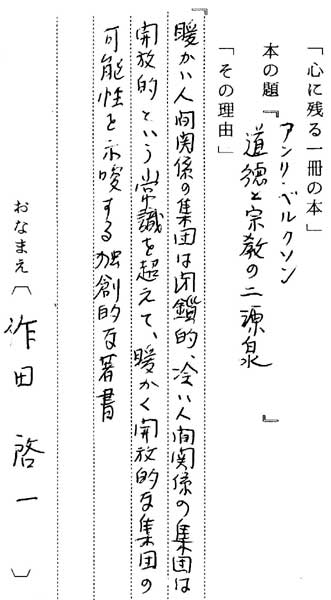 「心に残る一冊の本」
アンリ・ベルクソン
本の題『道徳と宗教の二源泉』
「その理由」
『暖かい人间関係の集団は闭鎖的、冷い人间関係の集団は
開放的という常識を超えて、暖かく開放的な集団の
可能性を示唆する独創的な著書
おなまえ〔作田 啓一〕